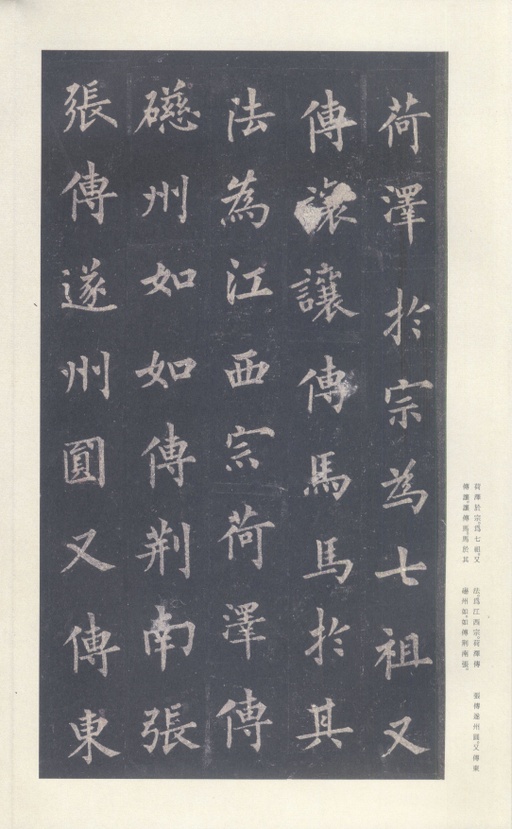 荷澤於宗為七祖又
傳讓讓傳馬馬於其
法為江西宗荷澤傳
礠州如如傳荆南張
張傳遂州圓又傳東
荷澤於宗、爲七祖。又
傳讓、讓傳馬。馬於其
法、爲江西宗。荷澤傳
礠州如、如傳荆南張。
張傳遂州圓。又傳東